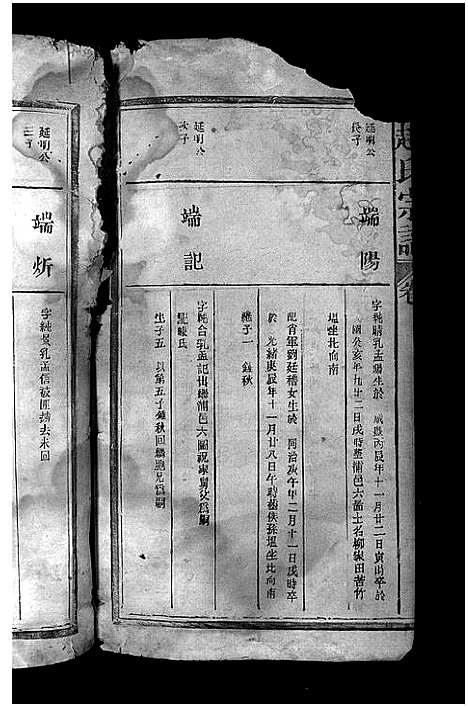 趙氏宗譜
卷
延明公
長子
端陽
字純 乳孟 生於 咸豐丙辰年十一月廿二日寅時卒於
國癸亥年九廿二日戌時葬浦邑六都土名柳 田苦竹
塭坐北向南
配百軍劉廷禧女生於 同治庚午年二月十一日戌時卒
於 光緒庚辰年十一月廿八日午時葬俠孫塭坐北向南
繼子一 鍾秋
延明公
次子
端記
字純合乳孟記出繼浦邑六圖祝家舅父為嗣
娶陳氏
生子五 以第五子鍾秋回 胞兄為嗣
延明公
三子
端炘
字純曼乳孟信被匪擄去未回